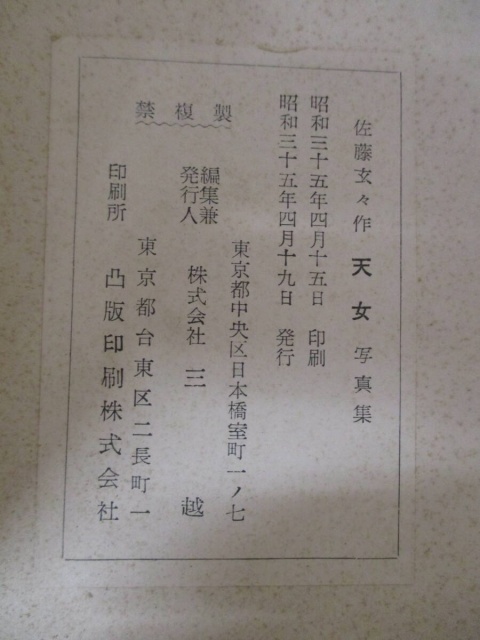 佐藤玄々作 天女 写真集
昭和三十五年四月十五日 印刷
昭和三十五年四月十九日 発行
禁複製
東京都中央区日本橋室町一ノ七
編集兼
発行人 株式会社 三越
東京都台東区二長町一
印刷所 凸版印刷株式会社